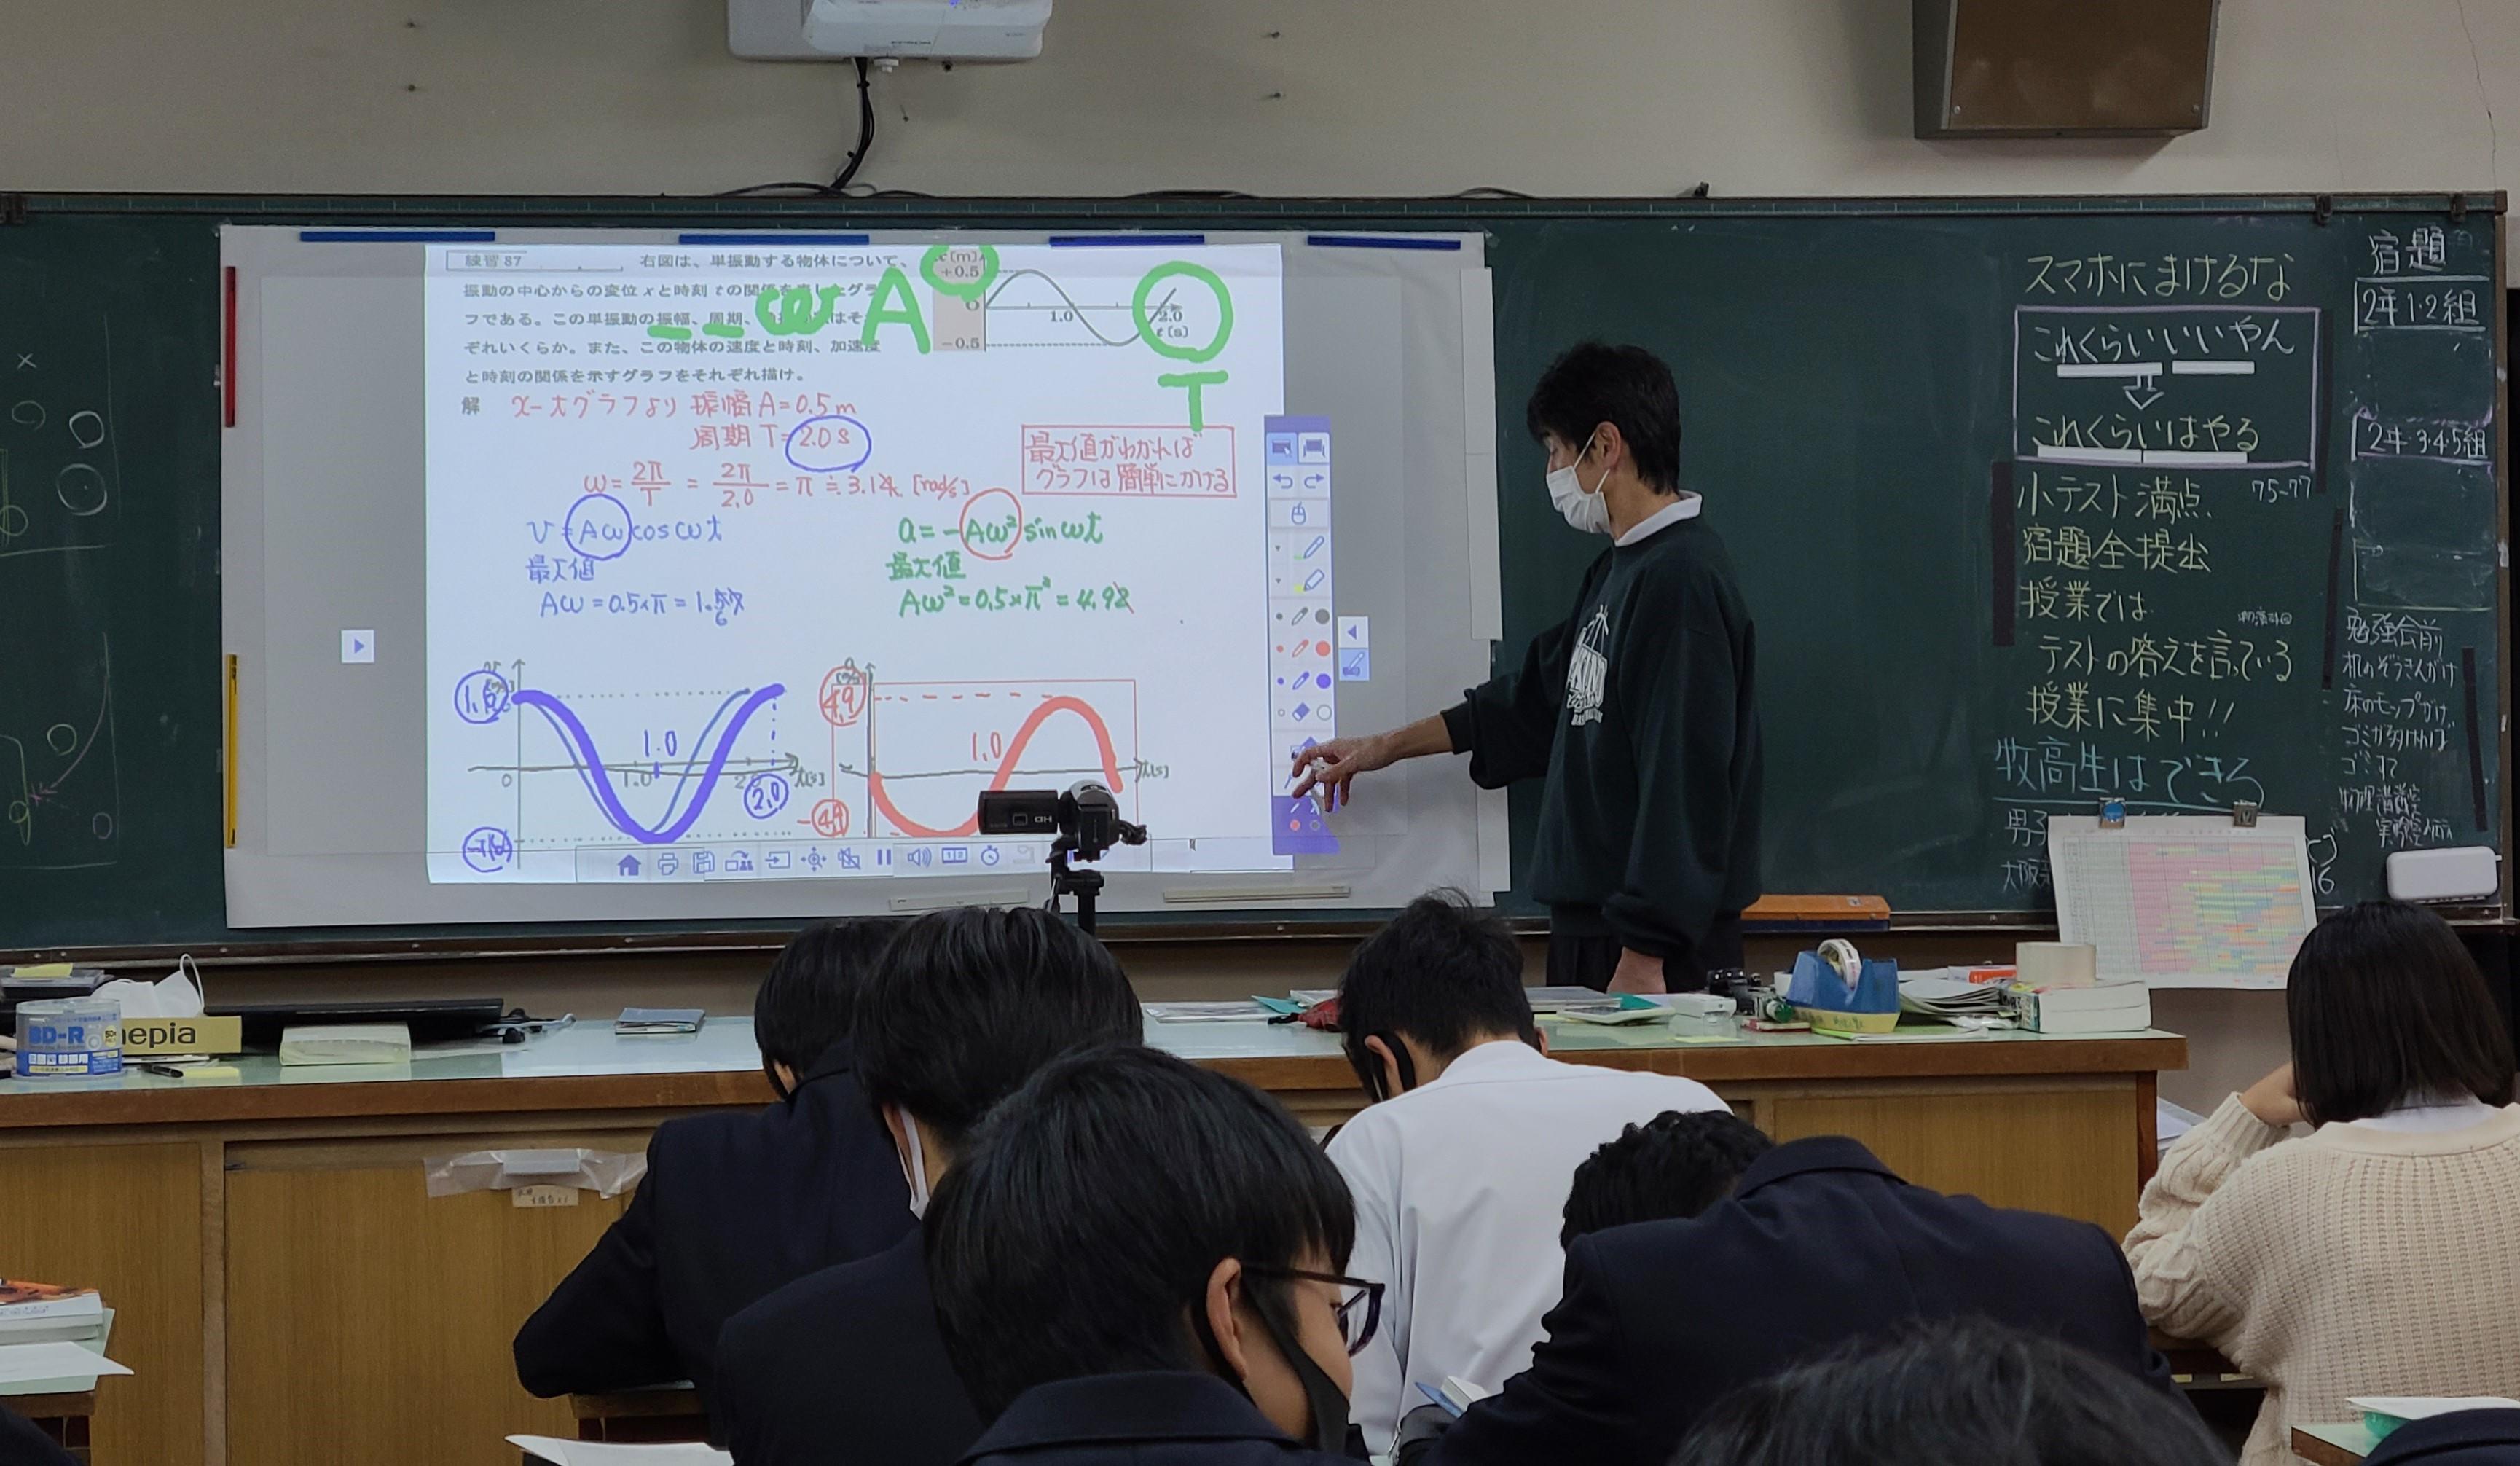 練習 87
右図は、単振動する物体について、
振動の中心からの変位 x と時刻 t の関係を表したグラ
フである。この単振動の振幅、周期、
ぞれいくらか。また、この物体の速度と時刻、加速度
と時刻の関係を示すグラフをそれぞれ描け。
x(m)
+0.5
O
-0.5
1.0
2.0
t(s)
ω
A
T
解
x-tグラフより 振幅 A=0.5m
周期 T=2.0s
ω=2π/T = 2π/2.0 = π ≒ 3.14 [rad/s]
最大値がわかれば
グラフは簡単にかける
v=Aω cos ωt
最大値
Aω=0.5×π=1.57
6
a=-Aω² sin ωt
最大値
Aω²=0.5×π²=4.92
1.6
0
1.0
1.0
2.0
2.0
t[s]
-1.6
4.9
1.0
-4.9
t[s]
スマホにまけるな
これくらいいいやん
これくらいはやる
小テスト満点 75-77
宿題全提出
授業では
テストの答えを言っている
授業に集中!!
牧高生はできる
男子
大阪
16
宿題
2年1・2組
2年・3・4・5組
勉強会前
机のぞうきんがけ
床のモップがけ
ゴミが多ければ
ゴミすて
物理講義室
HD
BD-R
nepia